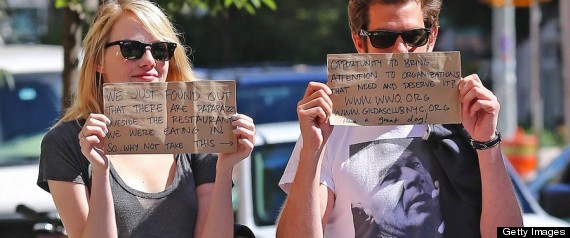 WE JUST FOUND OUT
THAT THERE ARE PAPARAZZI
OUTSIDE THE RESTAURANT
WE WERE EATING IN
SO... WHY NOT TAKE THIS →
OPPORTUNITY TO BRING
ATTENTION TO ORGANIZATIONS
THAT NEED AND DESERVE IT?
WWW.WWO.ORG
WWW.GILDASCLUBNYC.ORG
a great day!
Getty Images